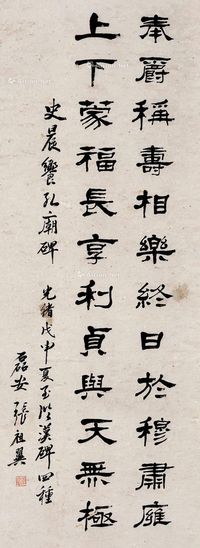 奉爵稱壽相樂終日於穆肅雍
上下蒙福長享利貞與天無極
史晨饗孔廟碑
光緒戊申夏至臨漢碑四種
磊安張祖翼